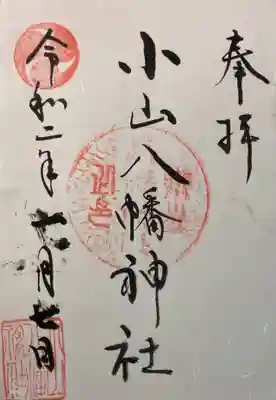 奉拝
小山八幡神社
令和二年十一月七日